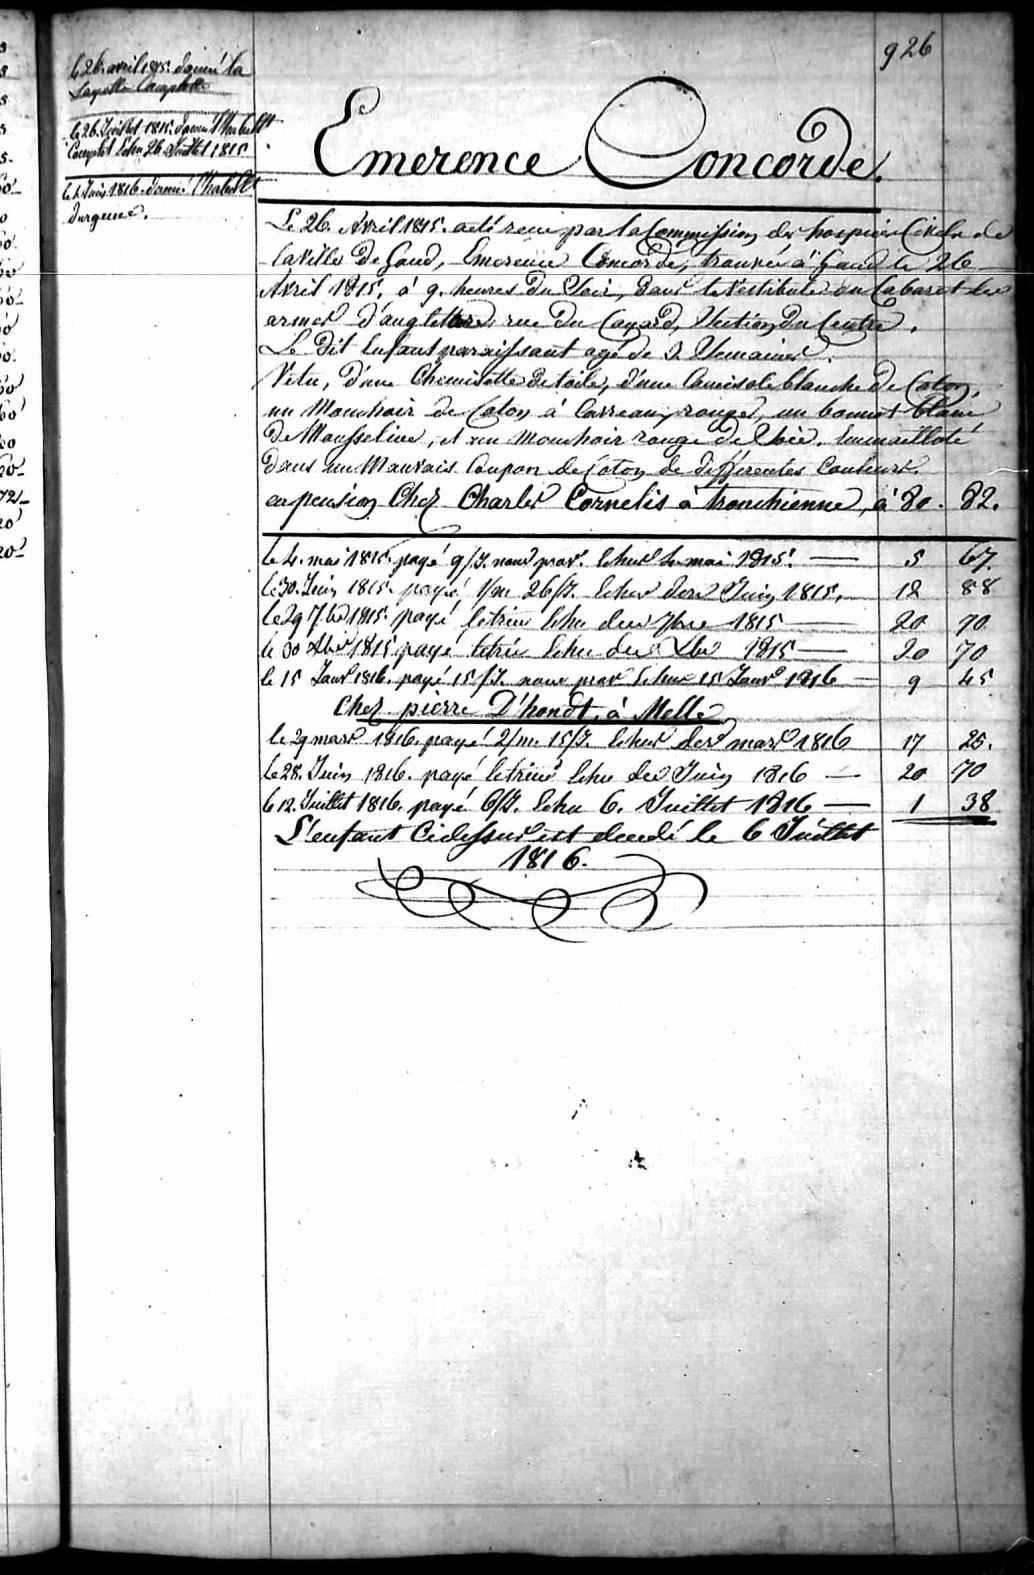 926
le 26 avril 1815. donné la
Layette Complette
le 26 Juillet 1815 donné l'habillt
Complet Echu 26 Juillet 1815
le 4 Juin 1816. donné l'habillt
durgence.
Emerence Concorde.
Le 26. Avril 1815. a été recu par la Commission des hospices Civils de
la ville de Gand, Emerence Concorde, trouvée à Gand le 26
Avril 1815, à 9. heures du Soir, dans le vestibule du Cabaret les
armes d'angleterre, rue du Canard, Section du Centre.
Le dit Enfant paraissant agé de 2 Semaines.
Vetu, d'une Chemisette de toile, d'une Camisole blanche de Coton,
un Mouchoir de Coton à Carreaux rouge, un bonnet blanc
de Mousseline, et un mouchoir rouge de Soie. Emmailloté
dans un Mauvais Coupon de Coton de differentes Couleurs.
en pension Chez Charles Cornelis à tronchienne, à 80. 82.
le 4. mai 1815. payé 9/J. nour prov. Echus 4 mai 1815. 5 67.
le 30. Juin 1815. payé 1/m 26/J. Echus der Juin 1815. 12 88
le 29 7bre 1815. payé letrim Echu der 7bre 1815 20 70
le 30 Xbre 1815 payé letrim Echu der Xbre 1815 20 70
le 15 Janv 1816. payé 15/J. nour prov Echus 15 Janvr 1816 9 45
Chez pierre D'hondt, à Melle
le 29 mars 1816. payé 2/m. 15/J. Echus der mars 1816 17 25.
le 28. Juin 1816. payé letrim Echu der Juin 1816 20 70
le 12. Juillet 1816. payé 6/J. Echu 6. Juillet 1816 1 38
L'enfant Cidessus est decedé le 6 Juillet
1816.